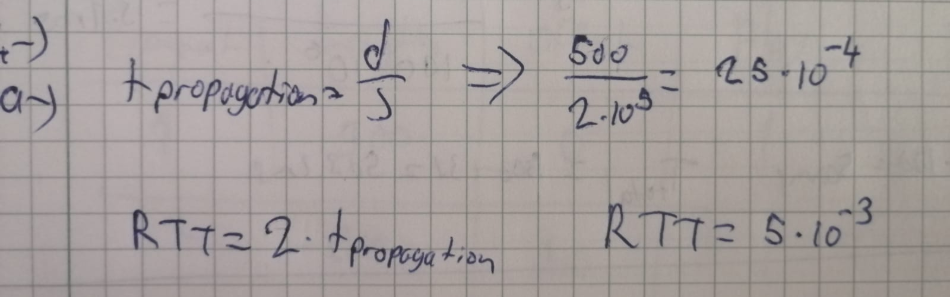 a-) t propagation = d/s ⇒ 500/2·10⁵ = 25·10⁻⁴
RTT = 2 · t propagation RTT = 5·10⁻³